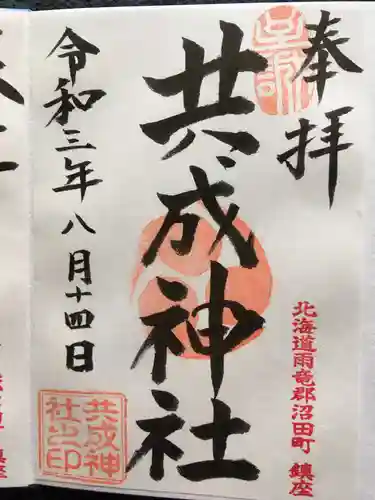 奉拝
共成神社
令和三年八月十四日
北海道雨竜郡沼田町 鎮座
共成神社之印